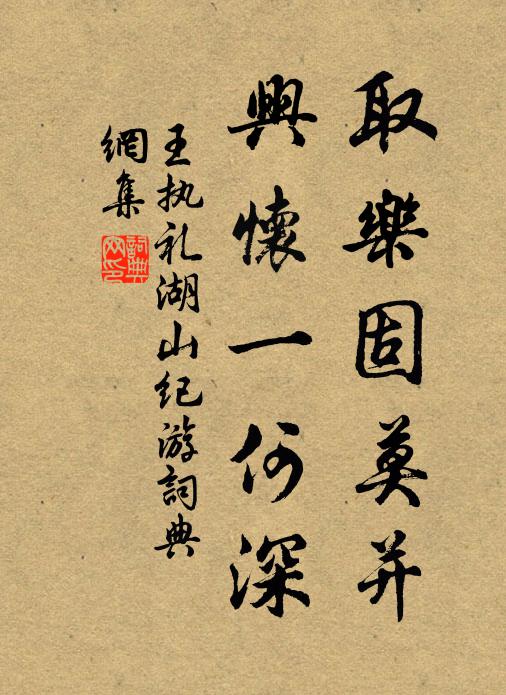 取樂固莫并
興懷一何深
王执礼湖山纪游詞典
網集
詞典网印